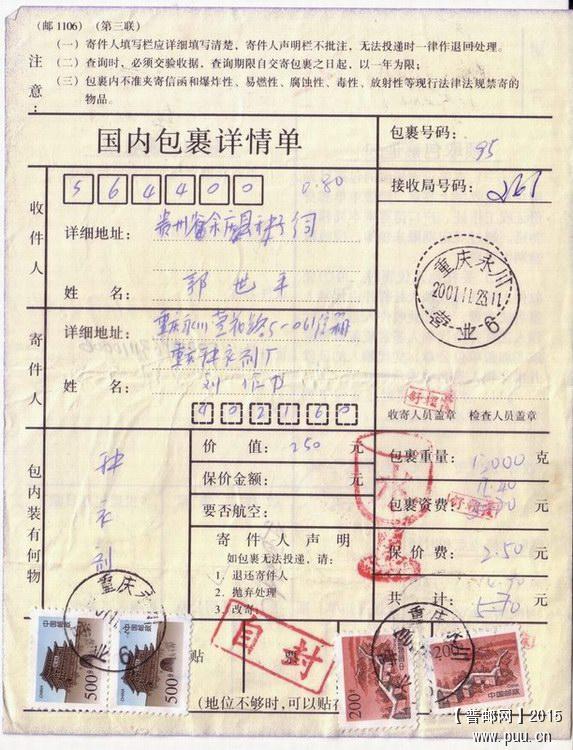 (邮1106)(第三联)
注意:
(一)寄件人填写栏应详细填写清楚,寄件人声明栏不批注,无法投递时一律作退回处理。
(二)查询时,必须交验收据,查询期限自交寄包裹之日起,以一年为限;
(三)包裹内不准夹寄信函和爆炸性、易燃性、腐蚀性、毒性、放射性等现行法律法规禁寄的
物品。
国内包裹详情单
包裹号码:
95
收件人
564400
0.80
接收局号码:
详细地址: 贵州省余庆县种子公司
姓 名: 郭世平
重庆永川
2001.11.23.11
营业6
寄件人
详细地址: 重庆永川
重庆种衣剂厂
姓 名: 刘
402160
收寄人员盖章 检查人员盖章
包内装有何物
种衣剂
价 值: 250 元
保价金额: 元
要否航空:
寄件人声明
如包裹无法投递,请:
1. 退还寄件人
2. 抛弃处理
3. 改寄:
包裹重量: 1,000 克
包裹资费: 元
保 价 费: 2.50 元
共 计: 元
自封
贴 票
(地位不够时,可以贴在
重庆永川
营业6
中国邮政
CHINA
500分
中国邮政
CHINA
500分
重庆永川
营业
200分
中国邮政
200分
中国邮政
【普邮网】2015
www.puu.cn